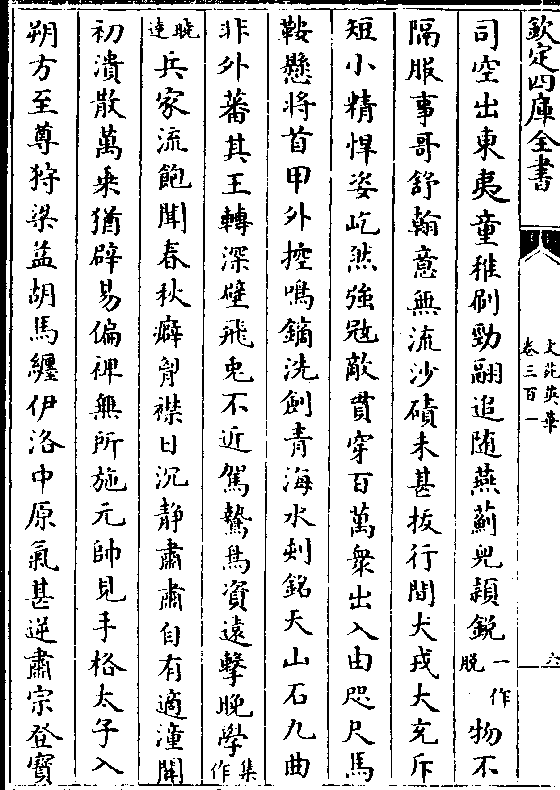 欽定四庫全書
文苑英華
卷三百一
六
司空出東夷童稚刷勁翮追随燕薊兒頴鋭一作脱物不
隔服事哥舒翰意無流沙磧未甚拔行間犬戎大充斥
短小精悍姿屹然強冦敵貫穿百萬衆出入由咫尺馬
鞍懸將首甲外控鳴鏑洗劍青海水刻銘天山石九曲
非外蕃其王轉深壁飛兎不近駕鷙鳥資遠撃晚學集作
曉達兵家流飽聞春秋癖胷襟日沉静肅肅自有適潼關
初潰散萬乘猶辟易偏裨無所施元帥見手格太子入
朔方至尊狩梁益胡馬纒伊洛中原氣甚逆肅宗登寳